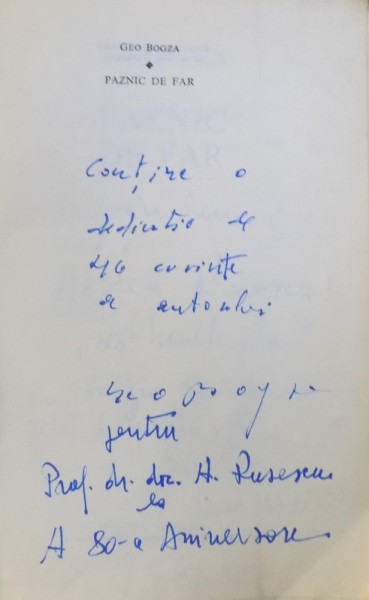 GEO BOGZA
PAZNIC DE FAR
Conține o
dedicație de
46 cuvinte
a autorului
pentru
Prof. dr. doc. A. Rusescu
la
A 80-a Aniversare